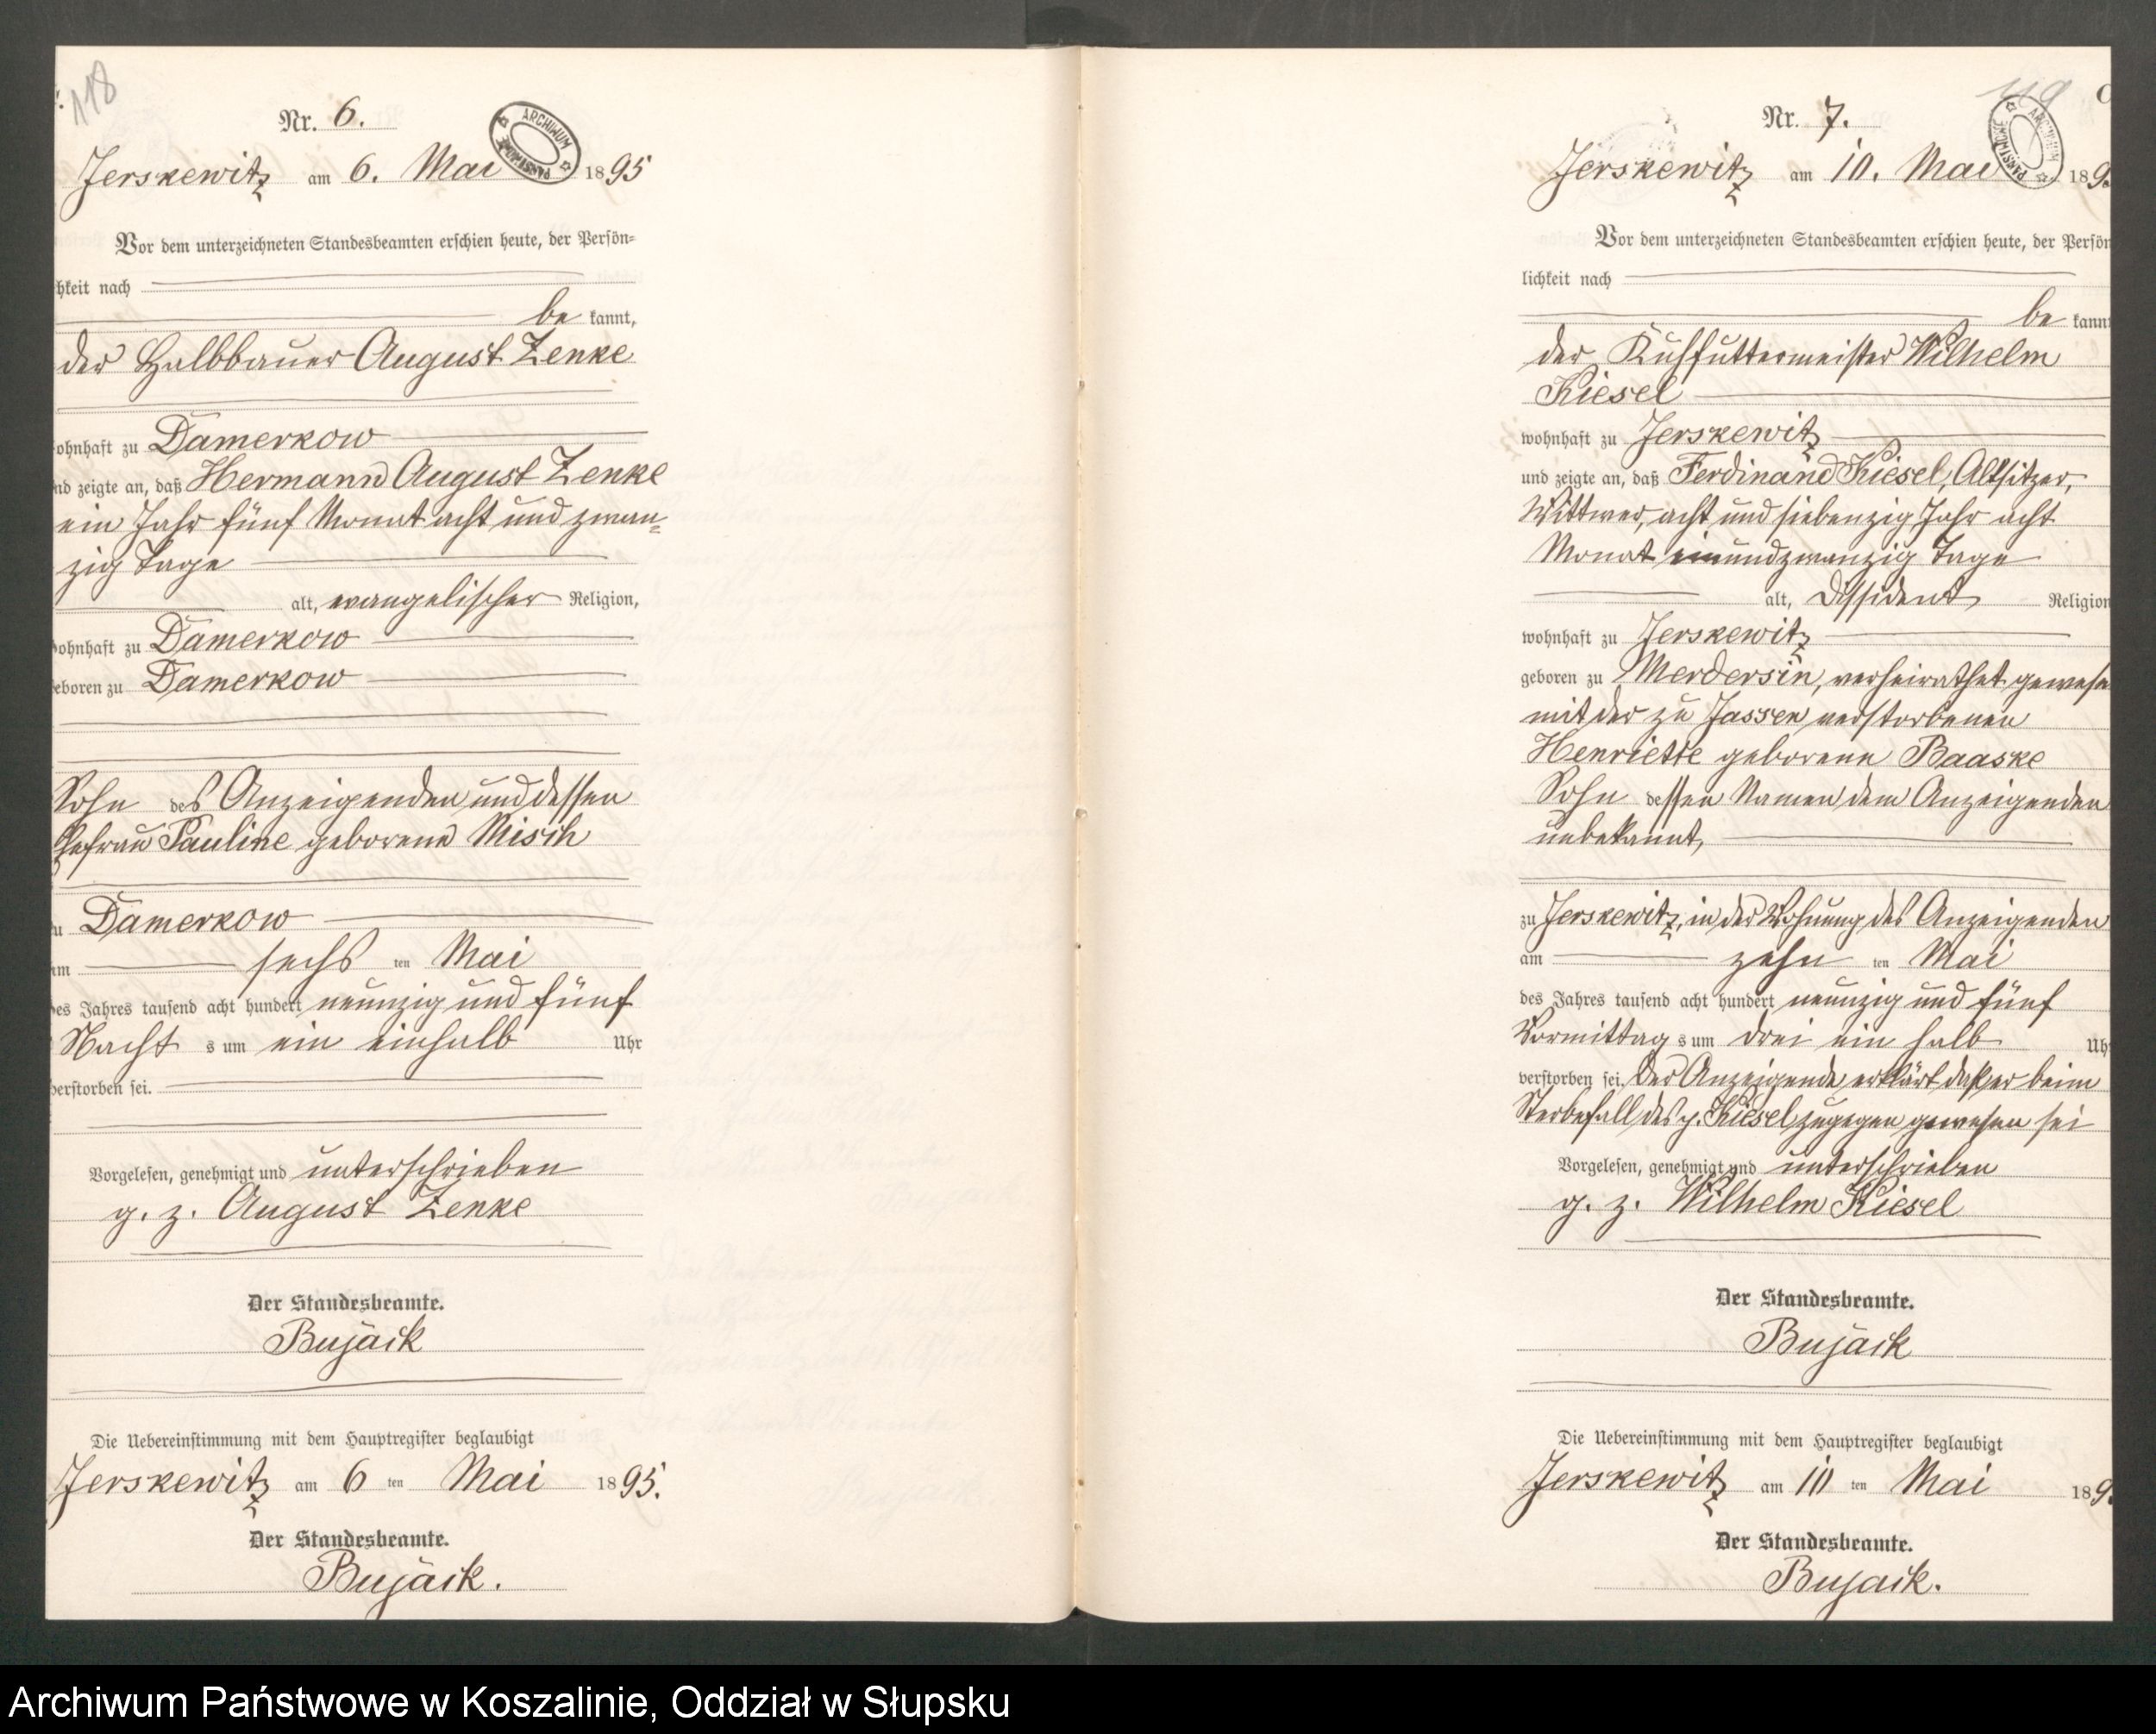 118
Nr. 6.
ARCHIWUM PAŃSTWOWE
Jerskewitz am 6. Mai 1895
Vor dem unterzeichneten Standesbeamten erschien heute, der Persön-
hkeit nach
be kannt,
der Halbbauer August Zenke
ohnhaft zu Damerkow
nd zeigte an, daß Hermann August Zenke
ein Jahr fünf Monat acht und zwan-
zig Tage
alt, evangelischer Religion,
ohnhaft zu Damerkow
eboren zu Damerkow
Sohn des Anzeigenden und dessen
Ehefrau Pauline geborene Misch
u Damerkow
am sechs ten Mai
des Jahres tausend acht hundert neunzig und fünf
Nacht s um ein einhalb Uhr
verstorben sei.
Vorgelesen, genehmigt und unterschrieben
g. z. August Zenke
Der Standesbeamte.
Bujack
Die Uebereinstimmung mit dem Hauptregister beglaubigt
Jerskewitz am 6 ten Mai 1895.
Der Standesbeamte.
Bujack.
119
Nr. 7.
ARCHIWUM PAŃSTWOWE
Jerskewitz am 10. Mai 189
Vor dem unterzeichneten Standesbeamten erschien heute, der Persön
lichkeit nach
be kannt
der Kuhfuttermeister Wilhelm
Kiesel
wohnhaft zu Jerskewitz
und zeigte an, daß Ferdinand Kiesel, Altsitzer,
Wittwer, acht und siebenzig Jahr acht
Monat einundzwanzig Tage
alt, Dissident Religion
wohnhaft zu Jerskewitz
geboren zu Merdersin, verheirathet gewese
mit der zu Jassen verstorbenen
Henriette geborene Baaske
Sohn dessen Namen dem Anzeigenden
unbekannt,
zu Jerskewitz, in der Wohnung des Anzeigenden
am zehn ten Mai
des Jahres tausend acht hundert neunzig und fünf
Vormittag s um drei ein halb Uh
verstorben sei. Der Anzeigende erklärt daß er beim
Sterbefall des p. Kiesel zugegen gewesen sei
Vorgelesen, genehmigt und unterschrieben
g. z. Wilhelm Kiesel
Der Standesbeamte.
Bujack
Die Uebereinstimmung mit dem Hauptregister beglaubigt
Jerskewitz am 10 ten Mai 189
Der Standesbeamte.
Bujack.
Archiwum Państwowe w Koszalinie, Oddział w Słupsku